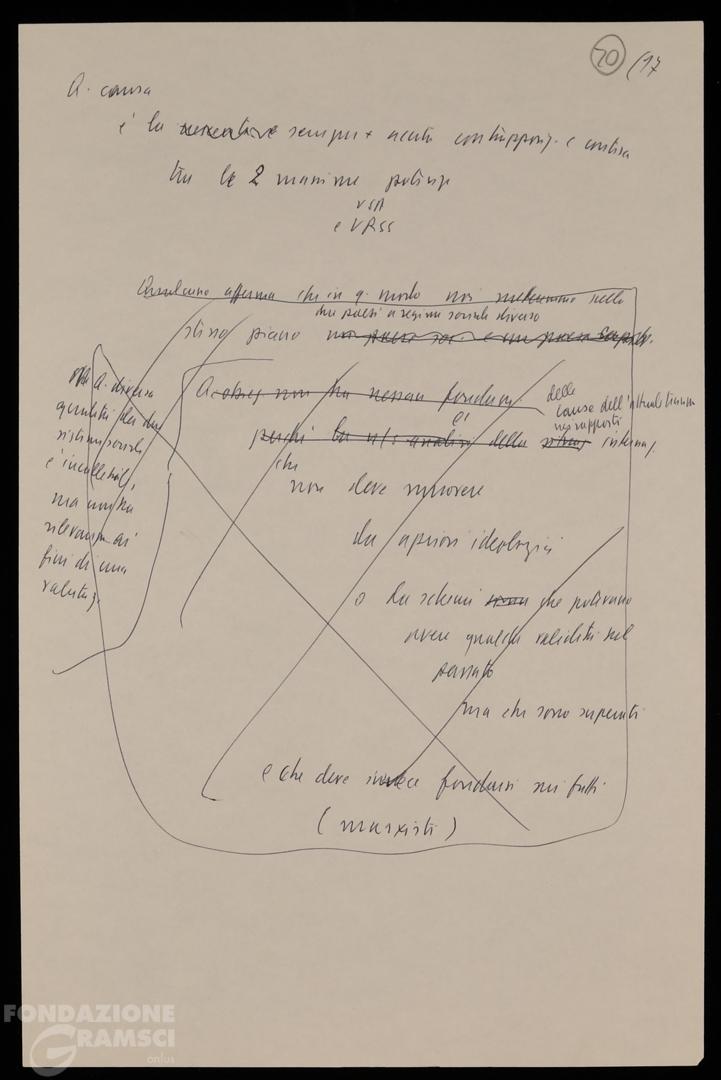 20 (17
Q. causa
è la sempre + acuta contrappos. e contesa
tra le 2 massime potenze
USA
e URSS
Qualcuno afferma che in q. modo noi mettiamo sullo
due paesi a regime sociale diverso
stesso piano
Q. obiez. non ha nessun fondam.
delle
cause dell'attuale
nei rapporti
perché la n/s analisi della internaz.
è
che
non deve muovere
da apriori ideologici
o da schemi che potevano
avere qualche validità nel
passato
ma che sono superati
e che deve invece fondarsi sui fatti
(marxisti)
Q. diversa
qualità dei due
sistemi sociali
è
ma non ha
rilevanza ai
fini di una
valutaz.
FONDAZIONE
GRAMSCI
onlus